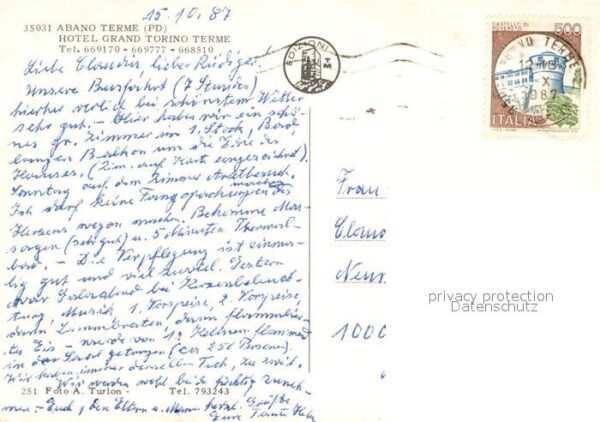 15.10.87
35031 ABANO TERME (PD)
HOTEL GRAND TORINO TERME
Tel. 669170 - 669777 - 668510
Liebe Claudia, lieber Rüdiger!
Unsere Busfahrt (7 Stunden)
hierher verlief bei schönstem Wetter
sehr gut. - Hier haben wir ein schö-
nes gr. Zimmer im 1. Stock, Bad
langen Balkon um die Ecke des
Hauses. (Zim. auf Karte eingezeichnet).
Sonntag auf dem Zimmer Arztbesuch.
Ich darf keine Fangopackungen des
Herzens wegen machen. Bekomme Mas-
sagen (sehr gut) u. 5 Minuten Thermal-
bad. - Die Verpflegung ist einma-
lig gut und viel zuviel. Gestern
war Galaabend bei Kerzenbeleuch-
tung, Musik, 1. Vorspeise, 2. Vorspeise,
dann Lammbraten, dann flambier-
tes Eis - wurde von 12 Kellnern flammend
in den Saal getragen (ca 250 Personen).
Wir haben immer denselben Tisch, zu zweit.
Wir werden wohl beide tüchtig zuneh-
men. - Euch, den Eltern u. herzl. Grüße
Eure Tante
251 Foto A. Turlon - Tel. 793243
TM
CASTELLO DI
ROVERETO
500
ABANO TERME
X
1987
ITALIA
Frau
Claud
Neu
1000
privacy protection
Datenschutz